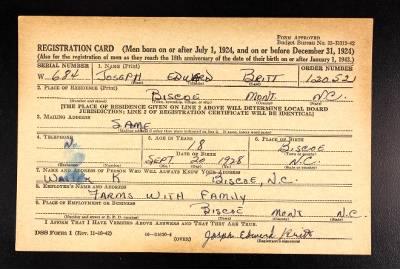 FORM APPROVED
Budget Bureau No. 33-R019-42
REGISTRATION CARD (Men born on or after July 1, 1924, and on or before December 31, 1924)
(Also for the registration of men as they reach the 18th anniversary of the date of their birth on or after January 1, 1943.)
SERIAL NUMBER 1. NAME (Print) ORDER NUMBER
W 684 JOSEPH EDWARD BRITT 12052
2. PLACE OF RESIDENCE (Print)
BISCOE MONT. N.C.
[THE PLACE OF RESIDENCE GIVEN ON LINE 2 ABOVE WILL DETERMINE LOCAL BOARD
JURISDICTION; LINE 2 OF REGISTRATION CERTIFICATE WILL BE IDENTICAL]
3. MAILING ADDRESS
SAME
4. TELEPHONE 5. AGE IN YEARS 6. PLACE OF BIRTH
No 18 BISCOE
DATE OF BIRTH
SEPT. 20 1928 N.C.
7. NAME AND ADDRESS OF PERSON WHO WILL ALWAYS KNOW YOUR ADDRESS
K BISCOE, N.C.
8. EMPLOYER'S NAME AND ADDRESS
FARMS WITH FAMILY
9. PLACE OF EMPLOYMENT OR BUSINESS
BISCOE MONT N.C.
I AFFIRM THAT I HAVE VERIFIED ABOVE ANSWERS AND THAT THEY ARE TRUE.
DSS Form 1 (Rev. 11-16-42) (OVER) Joseph Edward Britt